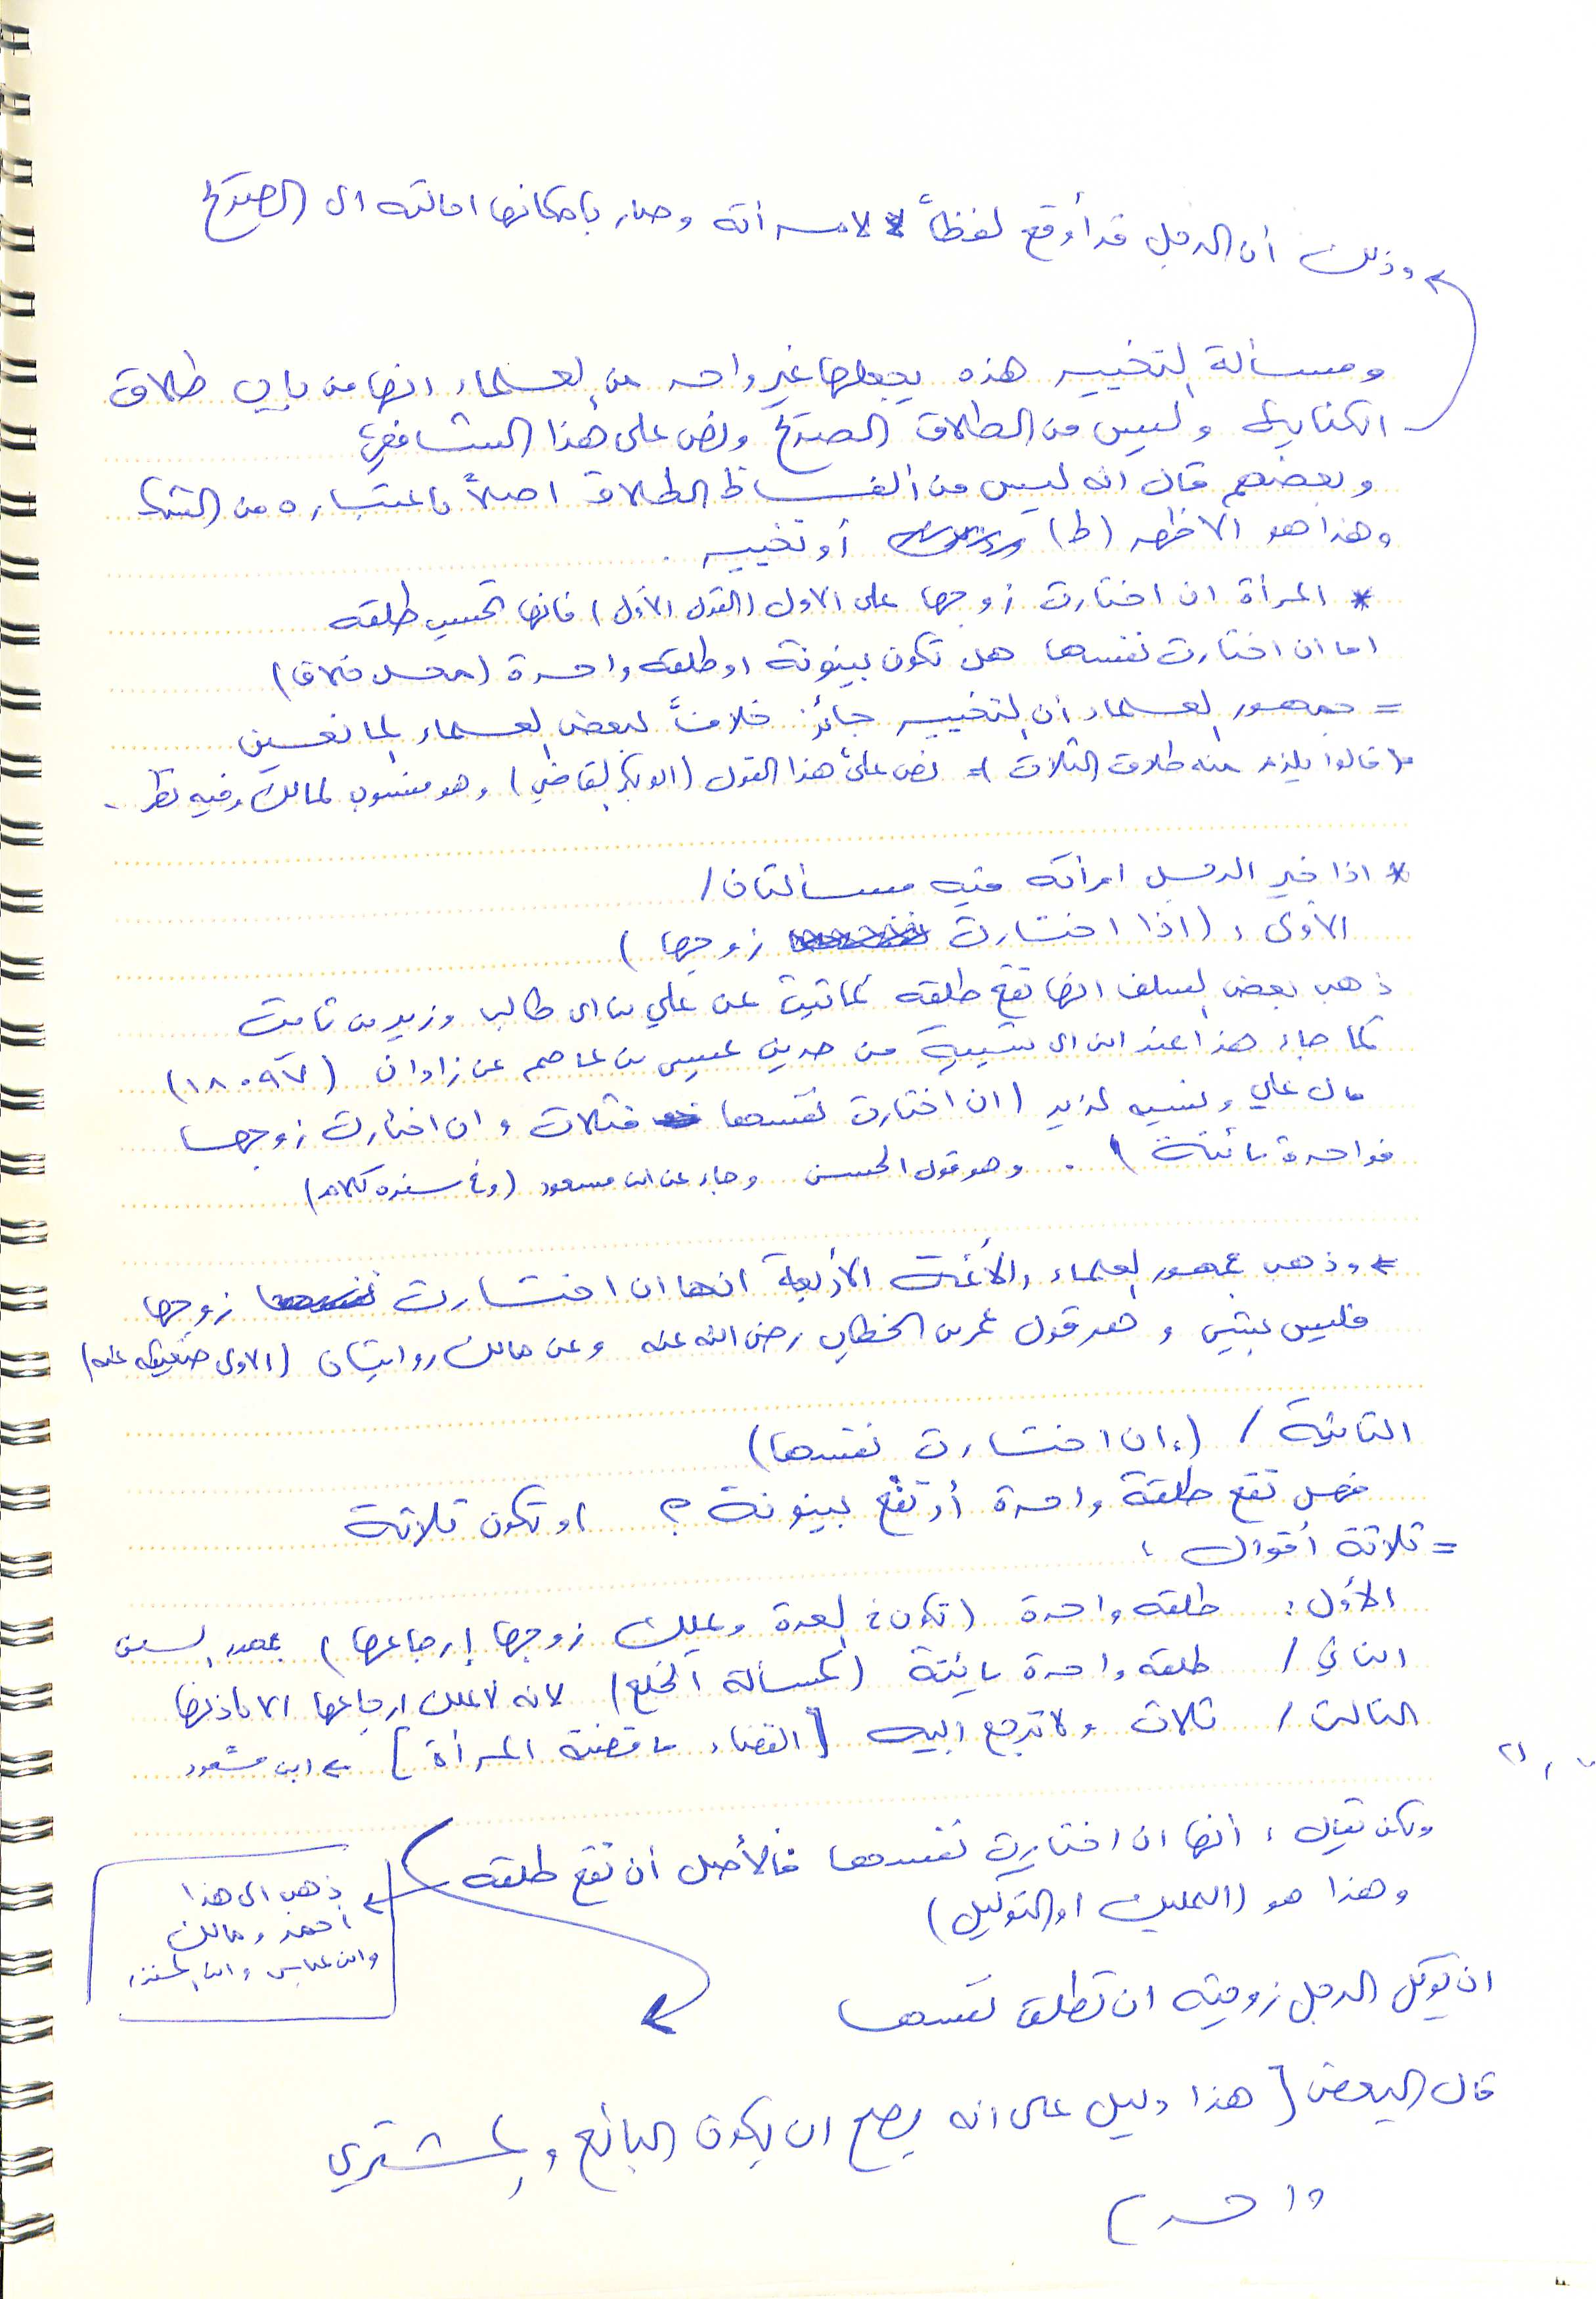 وذلك أن الرجل قد أوقع لفظاً لامرأته وصار بإمكانها احالته الى الصريح
ومسألة التخيير هذه يجعلها غير واحد من العلماء انها من باب طلاق
الكناية وليس من الطلاق الصريح ونص على هذا الشافعي
وبعضهم قال انه ليس من ألفاظ الطلاق اصلاً باعتباره من
وهذا هو الاظهر (ط) أو تخيير .
* المرأة ان اختارت زوجها على الاول (القول الأول) فانها تحسب طلقه
اما ان اختارت نفسها هل تكون بينونة او طلقه واحدة (محل خلاف)
= جمهور العلماء أن التخيير جائز خلافاً لبعض العلماء المانعين
قالوا يلزم منه طلاق الثلاث نص على هذا القول (ابو بكر القاضي) وهو منسوب لمالك وفيه نظر .
* اذا خير الرجل امرأته ففيه مسألتان /
الأولى : (اذا اختارت زوجها)
ذهب بعض السلف انها تقع طلقه كما ثبت عن علي بن ابي طالب وزيد بن ثابت
كما جاء هذا عند ابن ابي شيبة من حديث عيسى بن عاصم عن زاذان (١٨٠٩٧)
قال علي ونسبه لزيد (ان اختارت نفسها فثلاث وان اختارت زوجها
فواحدة بائنة) . وهو قول الحسن وجاء عن ابن مسعود (وفي سنده كلام)
وذهب جمهور العلماء والأئمة الأربعة انها ان اختارت زوجها
فليس بشيء وهو قول عمر بن الخطاب رضي الله عنه وعن مالك روايتان (الاولى ضعيفه عنه)
الثانية / (ان اختارت نفسها)
فهل تقع طلقة واحدة أو تقع بينونة ؟ او تكون ثلاثة
= ثلاثة أقوال :
الأول : طلقه واحدة (تكون في العدة ويملك زوجها إرجاعها) جمهور السلف
الثاني / طلقه واحدة بائنة (كمسألة الخلع) لانه لا يملك ارجاعها الا باذنها
الثالث / ثلاث ولا ترجع اليه [القضاء ما قضت المرأة] ابن مسعود
ولكن يقال : أنها ان اختارت نفسها فالأصل أن تقع طلقه
ذهب الى هذا
أحمد ومالك
وابن عباس وابن المنذر
وهذا هو (التمليك او التوكيل)
ان يوكل الرجل زوجته ان تطلق نفسها
قال البعض [هذا دليل على انه يصح ان يكون البائع والمشتري
واحد)